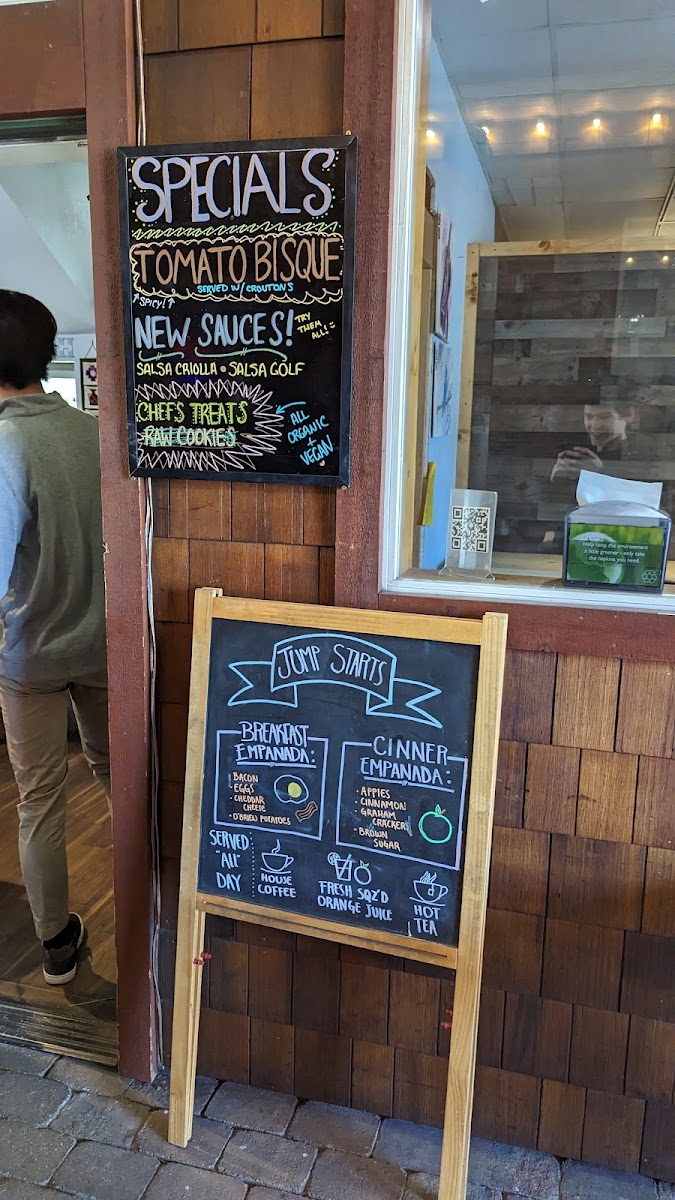 SPECIALS
TOMATO BISQUE
SERVED W/ CROUTONS
↑ SPICY! ↑
NEW SAUCES!
TRY
THEM
ALL!
SALSA CRIOLLA • SALSA GOLF
CHEFS TREATS
RAW COOKIES
ALL
ORGANIC
+
VEGAN
Help keep the environment
a little greener - only take
the napkins you need
JUMP STARTS
BREAKFAST
EMPANADA:
- BACON
- EGGS
- CHEDDAR
CHEESE
- O'BRIEN POTATOES
CINNER
EMPANADA:
- APPLES
- CINNAMON
- GRAHAM
CRACKER
- BROWN
SUGAR
SERVED
"ALL"
DAY
HOUSE
COFFEE
FRESH SQZ'D
ORANGE JUICE
HOT
TEA